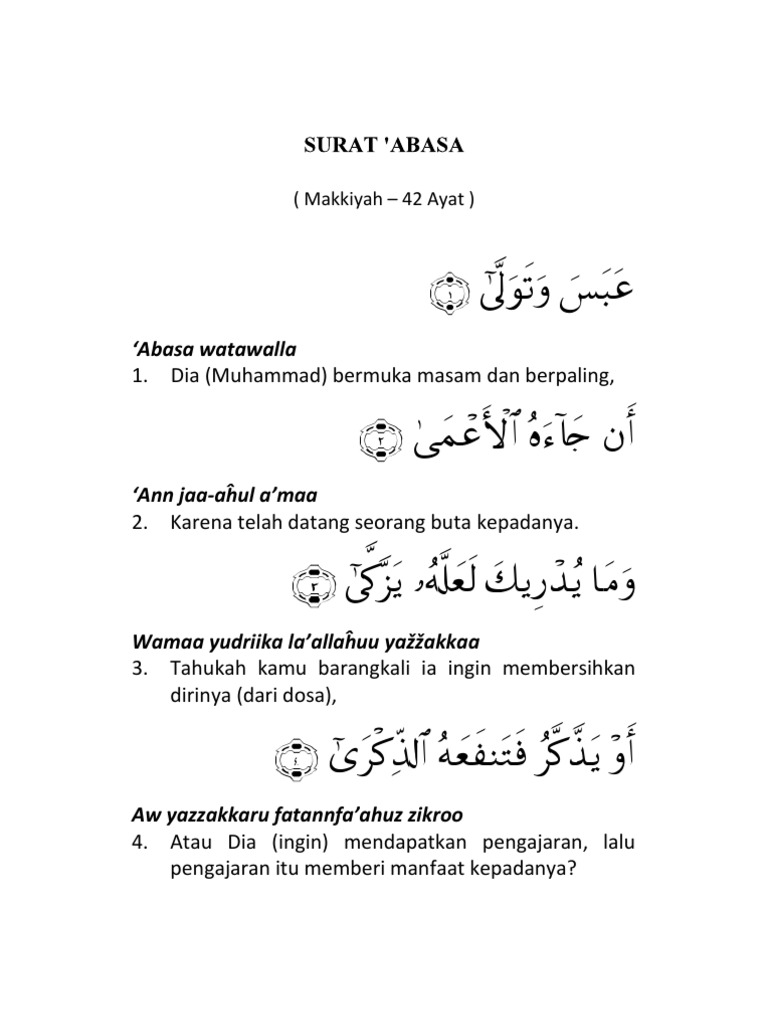 SURAT 'ABASA
( Makkiyah – 42 Ayat )
عَبَسَ وَتَوَلَّىٰٓ ١
‘Abasa watawalla
1. Dia (Muhammad) bermuka masam dan berpaling,
أَن جَآءَهُ ٱلۡأَعۡمَىٰ ٢
‘Ann jaa-aĥul a’maa
2. Karena telah datang seorang buta kepadanya.
وَمَا يُدۡرِيكَ لَعَلَّهُۥ يَزَّكَّىٰٓ ٣
Wamaa yudriika la’allaĥuu yažžakkaa
3. Tahukah kamu barangkali ia ingin membersihkan
dirinya (dari dosa),
أَوۡ يَذَّكَّرُ فَتَنفَعَهُ ٱلذِّكۡرَىٰٓ ٤
Aw yazzakkaru fatannfa’ahuz zikroo
4. Atau Dia (ingin) mendapatkan pengajaran, lalu
pengajaran itu memberi manfaat kepadanya?